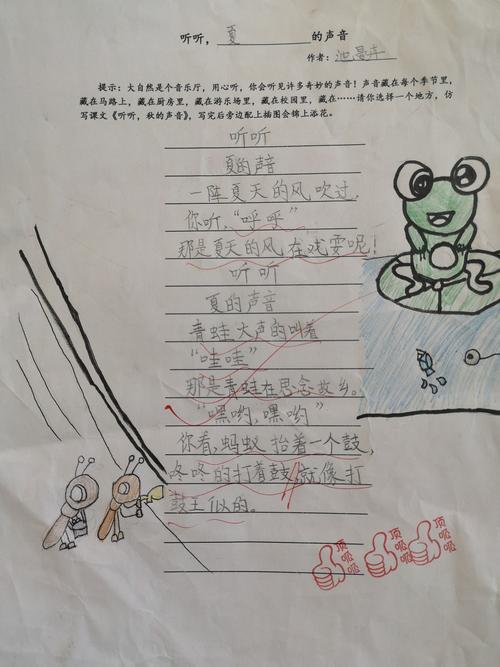 听听，夏的声音
作者：
提示：大自然是个音乐厅，用心听，你会听见许多奇妙的声音！声音藏在每个季节里，
藏在马路上，藏在厨房里，藏在游乐场里，藏在校园里，藏在……请你选择一个地方，仿
写课文《听听，秋的声音》，写完后旁边配上插图会锦上添花。
听听
夏的声音
一阵夏天的风吹过，
你听，“呼呼”
那是夏天的风，在戏耍呢！
听听
夏的声音
青蛙大声的叫着
“哇哇”
那是青蛙在思念故乡。
“嘿哟，嘿哟”
你看，蚂蚁抬着一个鼓，
咚咚的打着鼓，就像打
鼓王似的。
顶呱呱
顶呱呱
顶呱呱